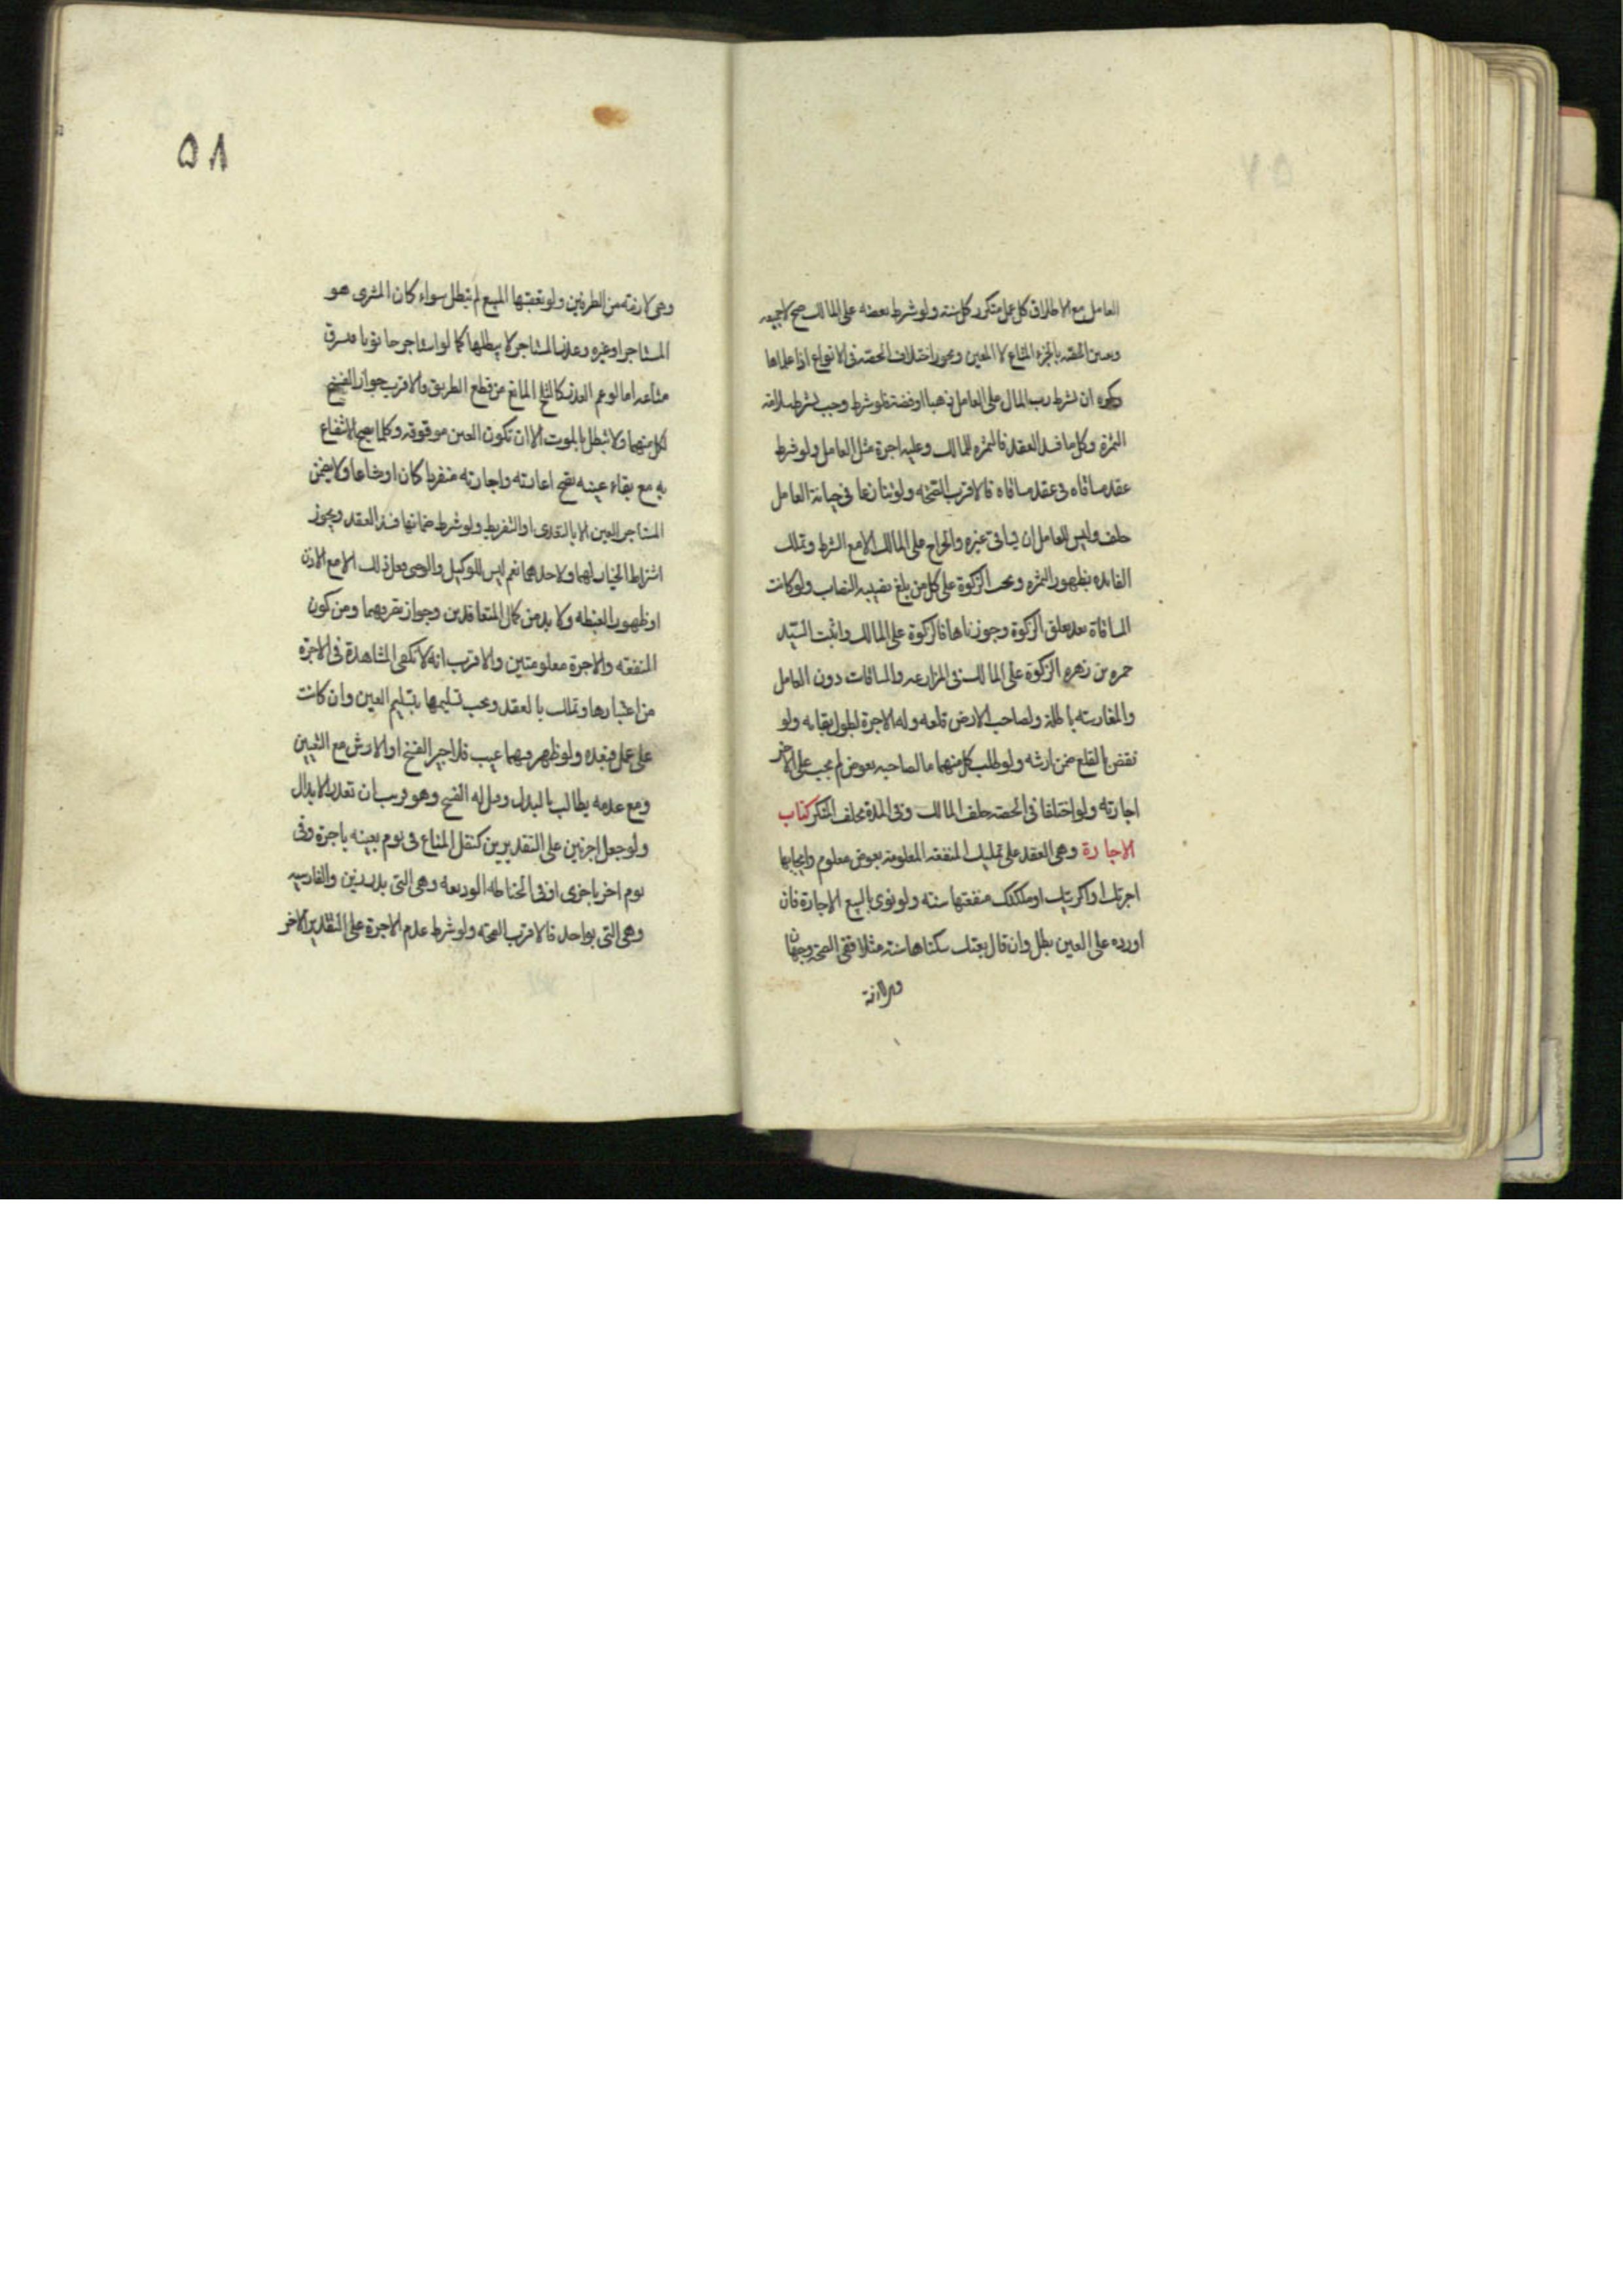 العامل مع الاطلاق كل عمل متكرر كل سنة ولو شرط بعضه على المالك صح لا جميعه
وتعيين الحصة بالجزء المشاع لا المعين ويجوز اختلاف الحصة في الانواع اذا علماها
ويكره ان يشترط رب المال على العامل ذهبا او فضة فلو شرط وجب بشرط سلامة
الثمرة وكل ما فسد العقد فالثمرة للمالك وعليه اجرة مثل العامل ولو شرط
عقد مساقاه في عقد مساقاه فالاقرب الصحه ولو تنازعا في خيانة العامل
حلف وليس للعامل ان يساقى غيره والخراج على المالك الا مع الشرط وتملك
الفائده بظهور الثمره وتجب الزكوة على كل من بلغ نصيبه النصاب ولو كانت
المساقاة بعد تعلق الزكوة وجوزناها فالزكوة على المالك واثبت السيّد
حمزه بن زهره الزكوة على المالك في المزارعه والمساقات دون العامل
والمغارسته باطلة ولصاحب الارض قلعه وله الاجرة لطول بقائه ولو
نقض بالقلع ضمن ارشه ولو طلب كل منهما ما لصاحبه بعوض لم يجب على الاخر
اجابته ولو اختلفا في الحصة حلف المالك وفي المدة يحلف المنكر كتاب
الاجارة وهي العقد على تمليك المنفعة المعلومة بعوض معلوم وايجابها
اجرتك او اكريتك او ملكتك منفعتها سنه ولو نوى بالبيع الاجارة فان
اورده على العين بطل وان قال بعتك سكناها سنة مثلا ففي الصحة وجهان
وهي لازمة
۵۸
وهي لازمته من الطرفين ولو تعقبها البيع لم تبطل سواء كان المشترى هو
المستاجر او غيره وعذر المستاجر لا يبطلها كما لو استاجر حانوتا فسرق
متاعه اما لو عم العذر كالثلج المانع من قطع الطريق فالاقرب جواز الفسخ
لكل منهما ولا تبطل بالموت الا ان تكون العين موقوفه وكلما يصح الانتفاع
به مع بقاء عينه يصح اعارته واجارته منفردا كان او مشاعا ولا يضمن
المستاجر العين الا بالتعدى او التفريط ولو شرط ضمانها فسد العقد ويجوز
اشتراط الخيار لهما ولاحدهما نعم ليس للوكيل والوصى فعل ذلك الا مع الاذن
او ظهور الغبطه ولا بد من كمال المتعاقدين وجواز تصرفهما ومن كون
المنفعته والاجرة معلومتين والاقرب انه لا تكفى المشاهدة في الاجرة
من اعتبارها وتملك بالعقد ويجب تسليمها بتسليم العين وان كانت
على عمل فبعده ولو ظهر فيها عيب فللاجير الفسخ او الارش مع التعيين
ومع عدمه يطالب بالبدل وقيل له الفسخ وهو قريب ان تعذر الابدال
ولو جعل اجرتين على التقديرين كنقل المتاع في يوم بعينه باجرة وفي
يوم اخر باخرى او في الخياطه الروميه وهي التي بدرزين والفارسيه
وهي التي بواحد فالاقرب الصحته ولو شرط عدم الاجرة على التقدير الاخر